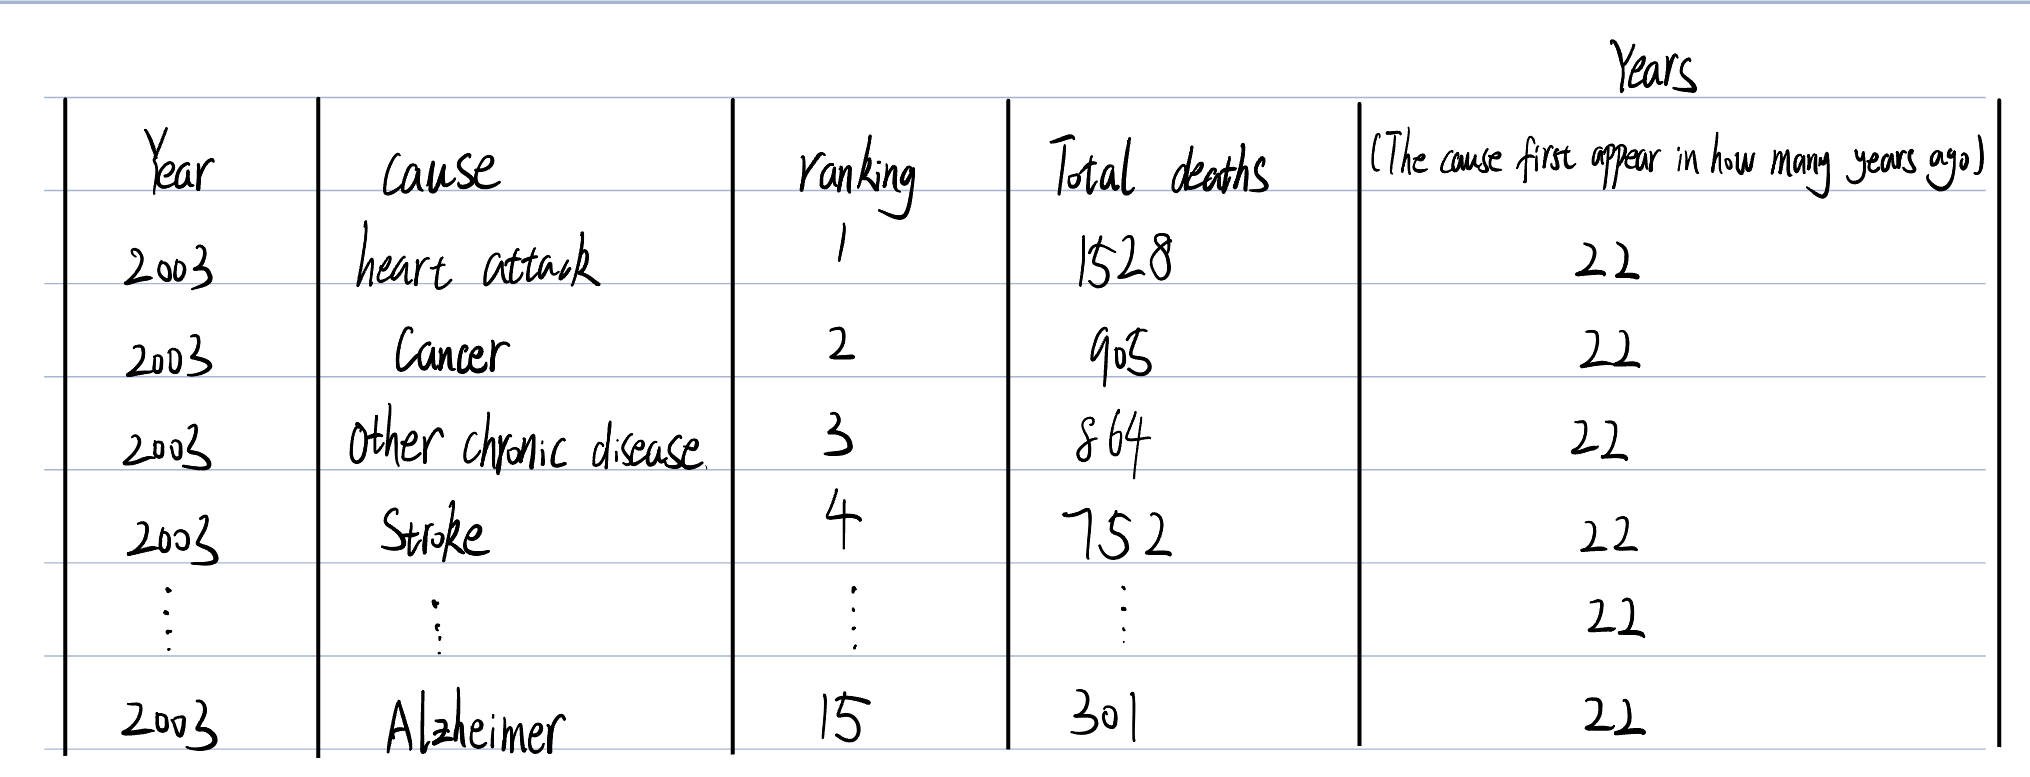 Years
Year cause ranking Total deaths (The cause first appear in how many years ago)
2003 heart attack 1 1528 22
2003 Cancer 2 905 22
2003 Other chronic disease. 3 864 22
2003 Stroke 4 752 22
⋮ ⋮ ⋮ ⋮ 22
2003 Alzheimer 15 301 22